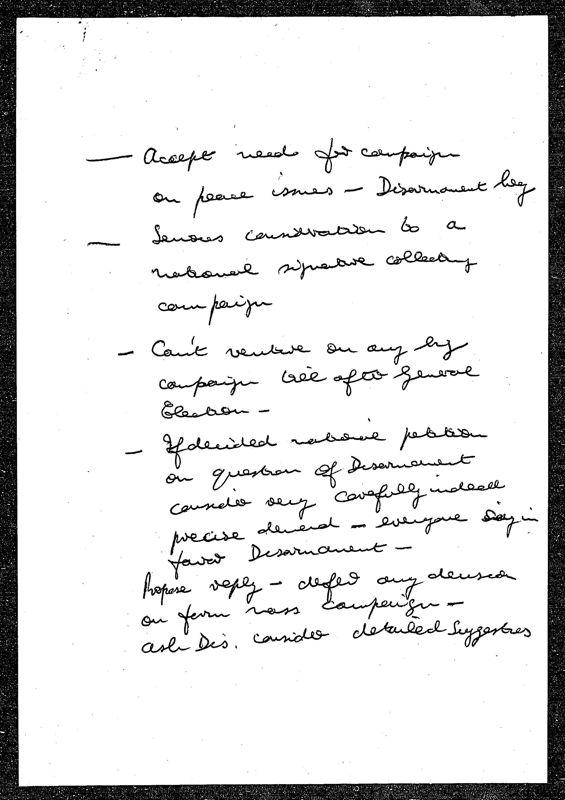 — Accept need for campaign
on peace issues — Disarmament key
— Serious consideration to a
national signature collecting
campaign
— Can't venture on any big
campaign till after General
Election —
— If decided national petition
on question of Disarmament
consider very carefully indeed
precise demand — everyone say in
favor Disarmament —
Propose reply — defer any decision
on form mass campaign —
ask Dis. consider detailed suggestions